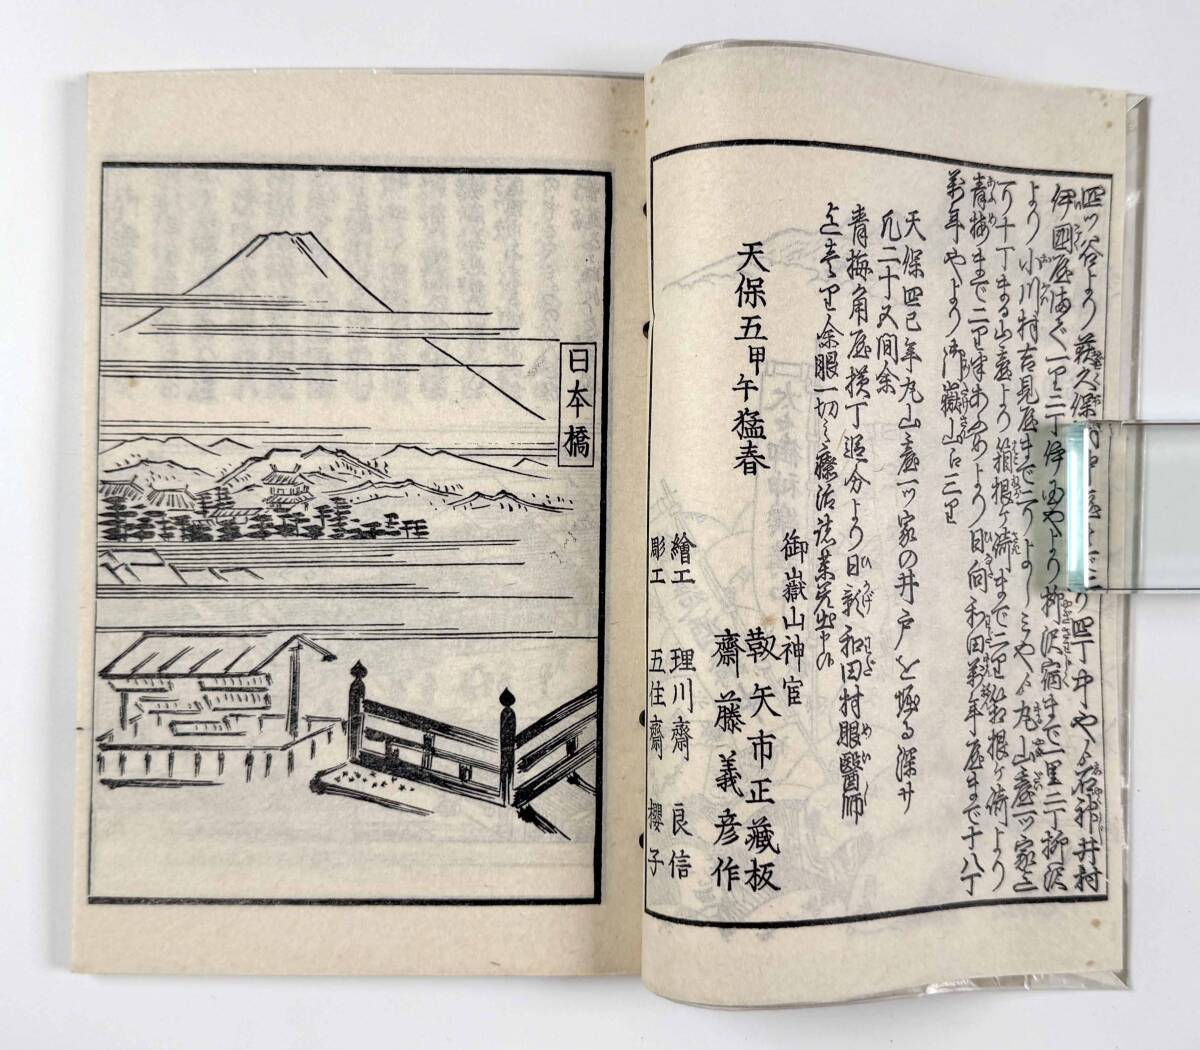 四ツ谷より荻久保村中屋まで二り四丁中やゟ石神井村
伊國屋迄一里二丁伊國やより柳沢宿まで一里二丁柳沢
より小川村吉見屋まで一りよしみやゟ丸山臺一ツ家迄
一り千丁丸山臺より箱根ケ﨑まで二里箱根ケ﨑より
青梅まで二里半青梅より日向和田萬年屋まで十八丁
萬年やより御嶽山江三里
天保四巳年丸山臺一ツ家の井戸を堀る深サ
凡二十五間余
青梅角屋横丁追分より日影和田村眼醫師
迄壹里余眼一切之療治
天保五甲午猛春
御嶽山神官
靱矢市正藏板
齋藤義彦作
繪工 理川齋 良信
彫工 五住齋 櫻子
日本橋